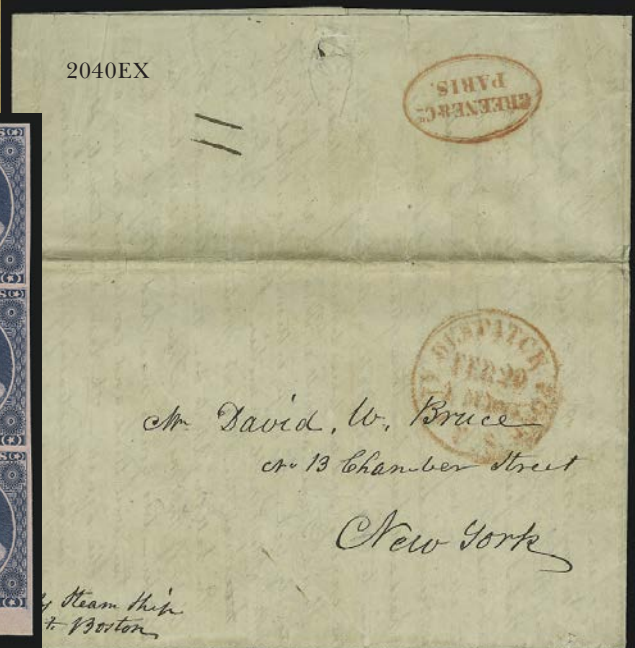 2040EX
GREENE & Co.
PARIS.
DESPATCH
FEB 29
Mr David. W. Bruce
No 13 Chamber Street
New York
Steam Ship
Boston